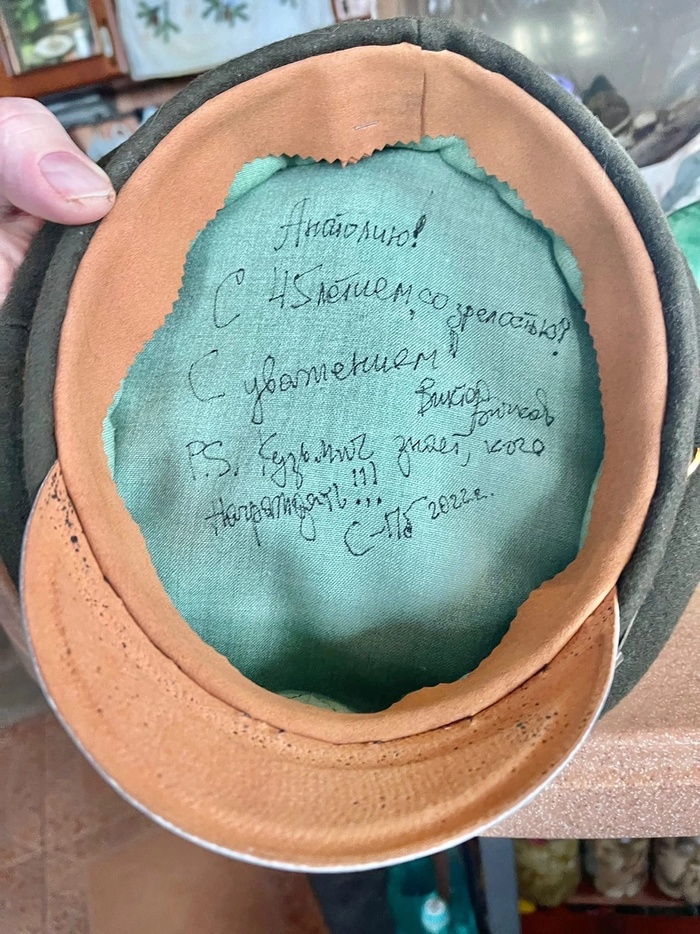 Анатолию!
С 45 летием, со зрелостью!
С уважением!
Виктор Бычков
P.S. Кузьмич знает, кого
награждать!!!
С-Пб 2022г.